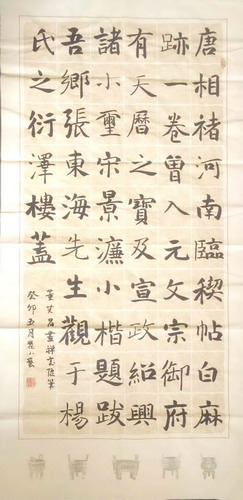 唐相褚河南臨稧帖白麻
跡一卷曾入元文宗御府
有天曆之寶及宣政紹興
諸小璽宋景濂小楷題跋
吾鄉張東海先生觀于楊
氏之衍澤樓蓋
董其昌畫禪室隨筆
癸卯五月